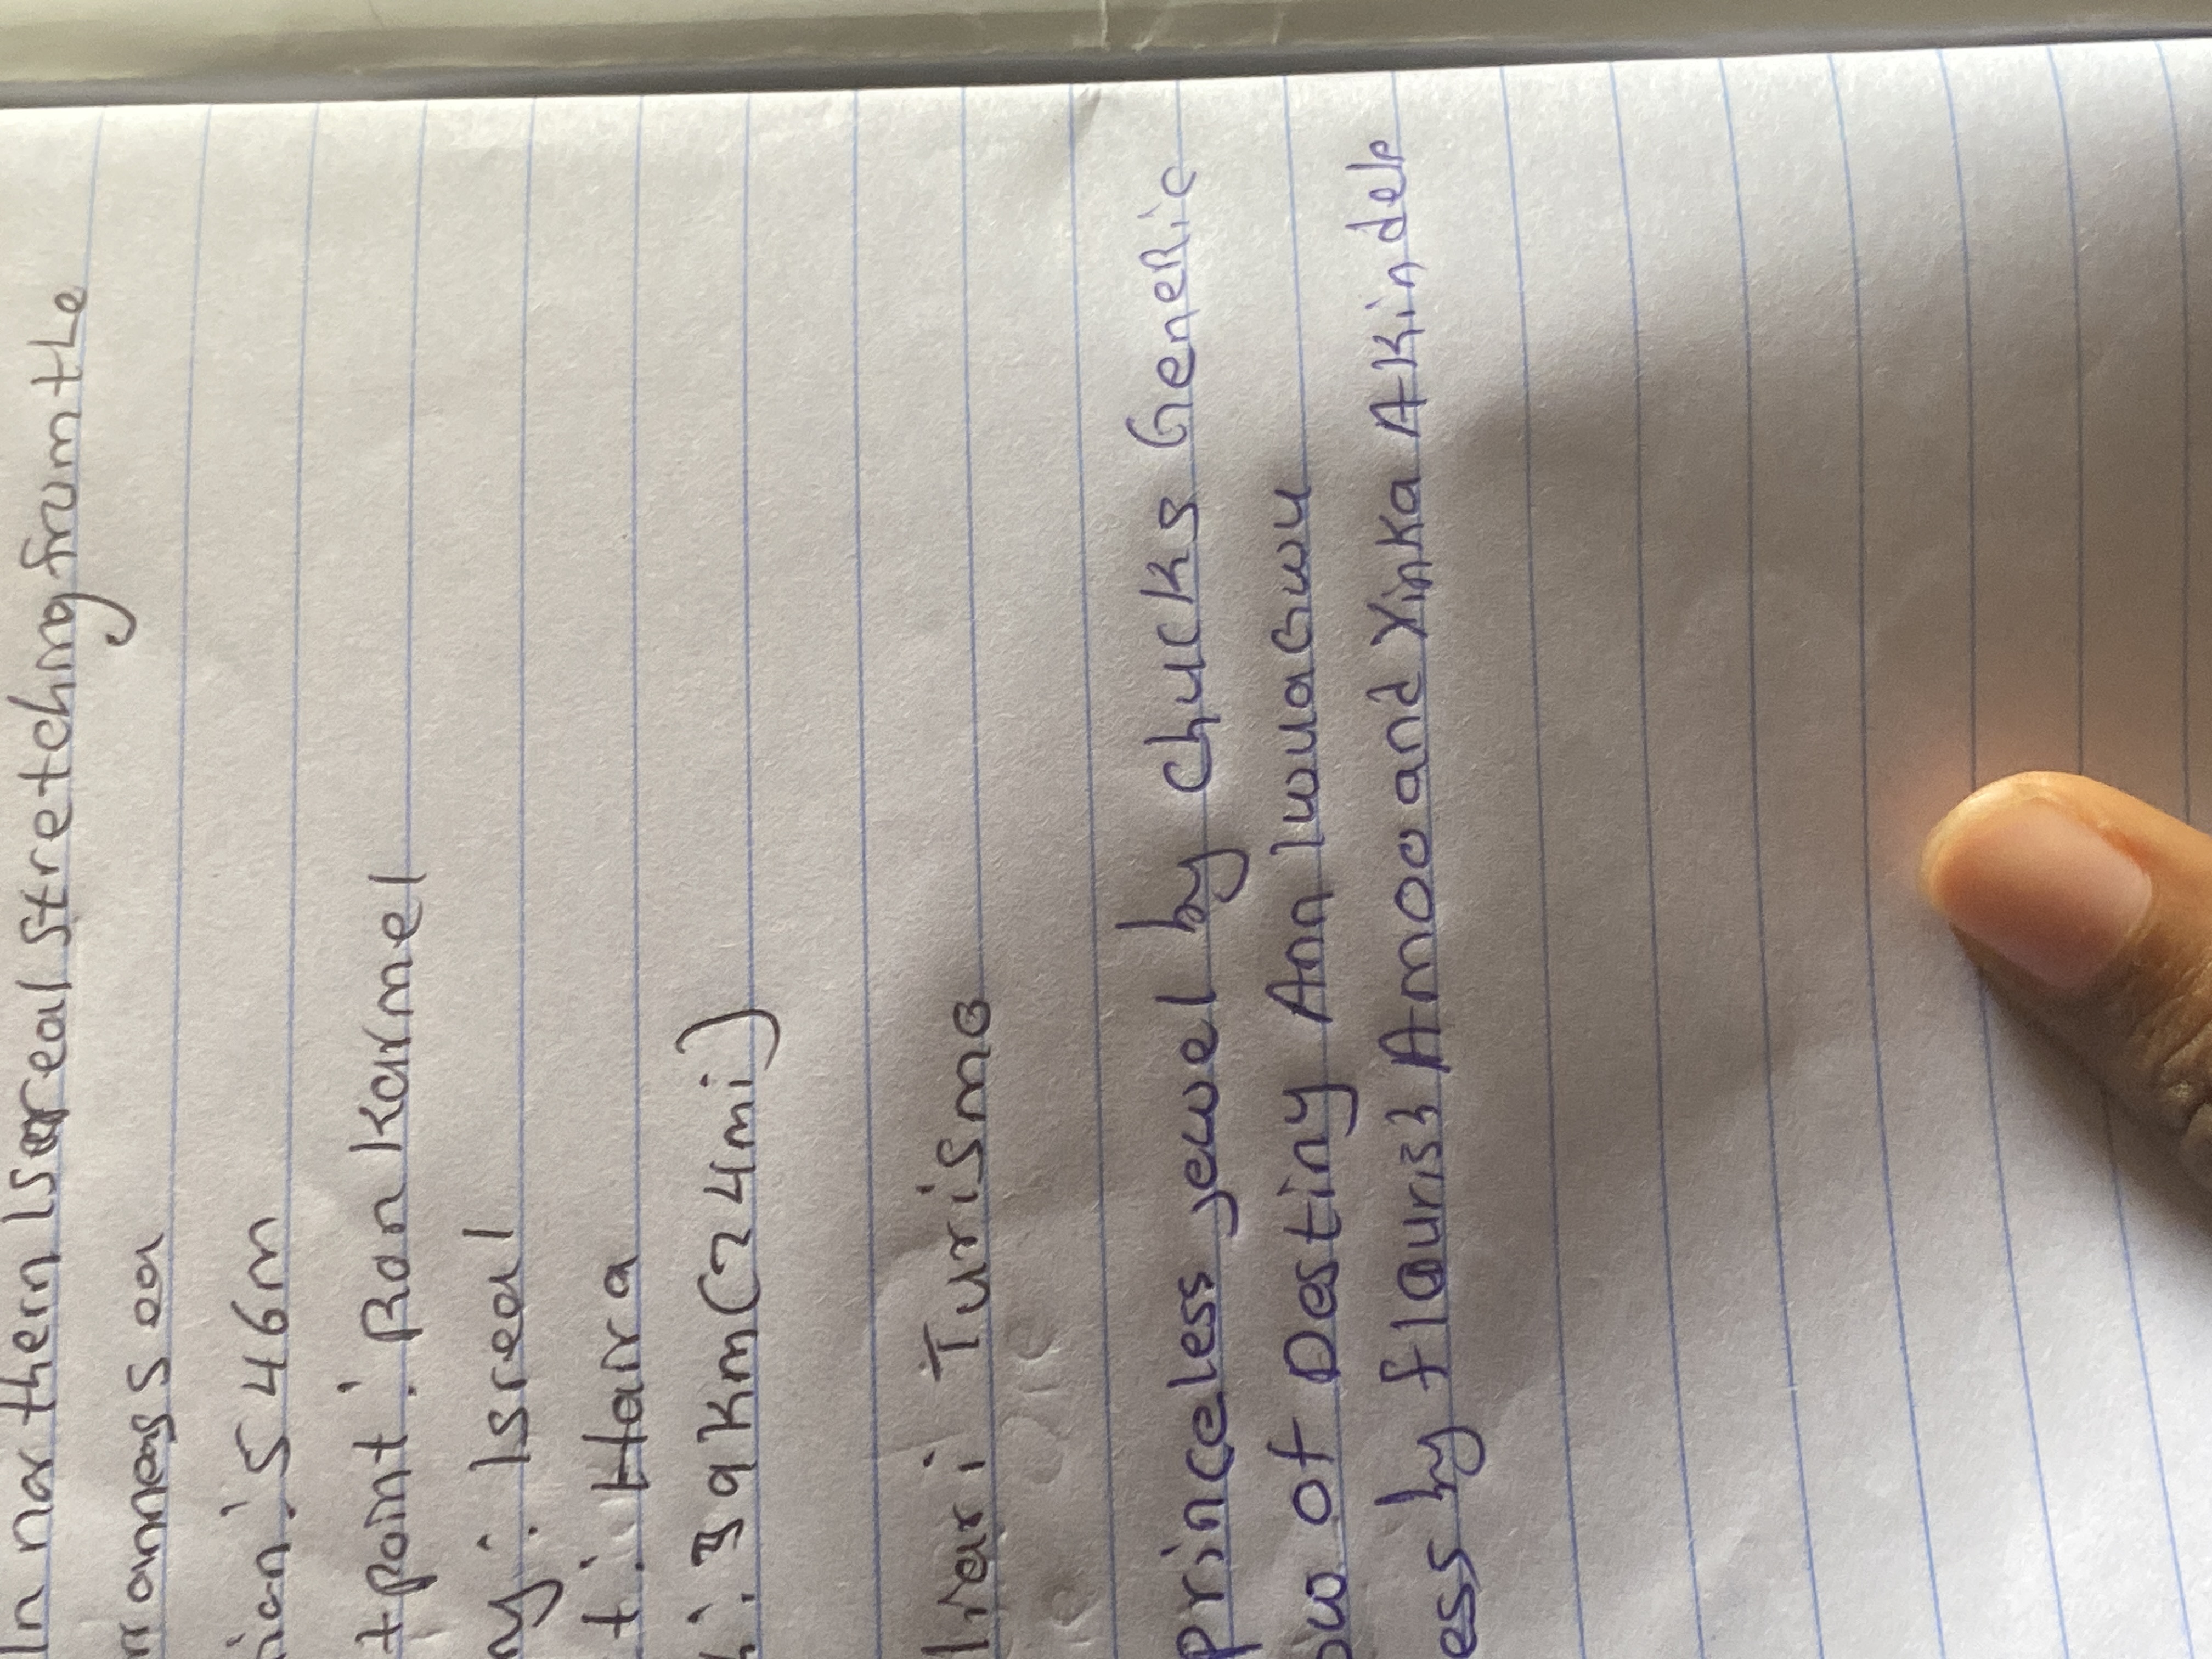 In northern Isereal stretching from the
rranneas sea
ion: 546m
t point: Ron Karmel
ny: Isreal
t: Haira
: 39Km (24mi)
liari Turismo
princeless jewel by Chucks GeneRic
ow of Destiny Ann IwuaGwu
ess by flourish Amoo and Yinka AKindele